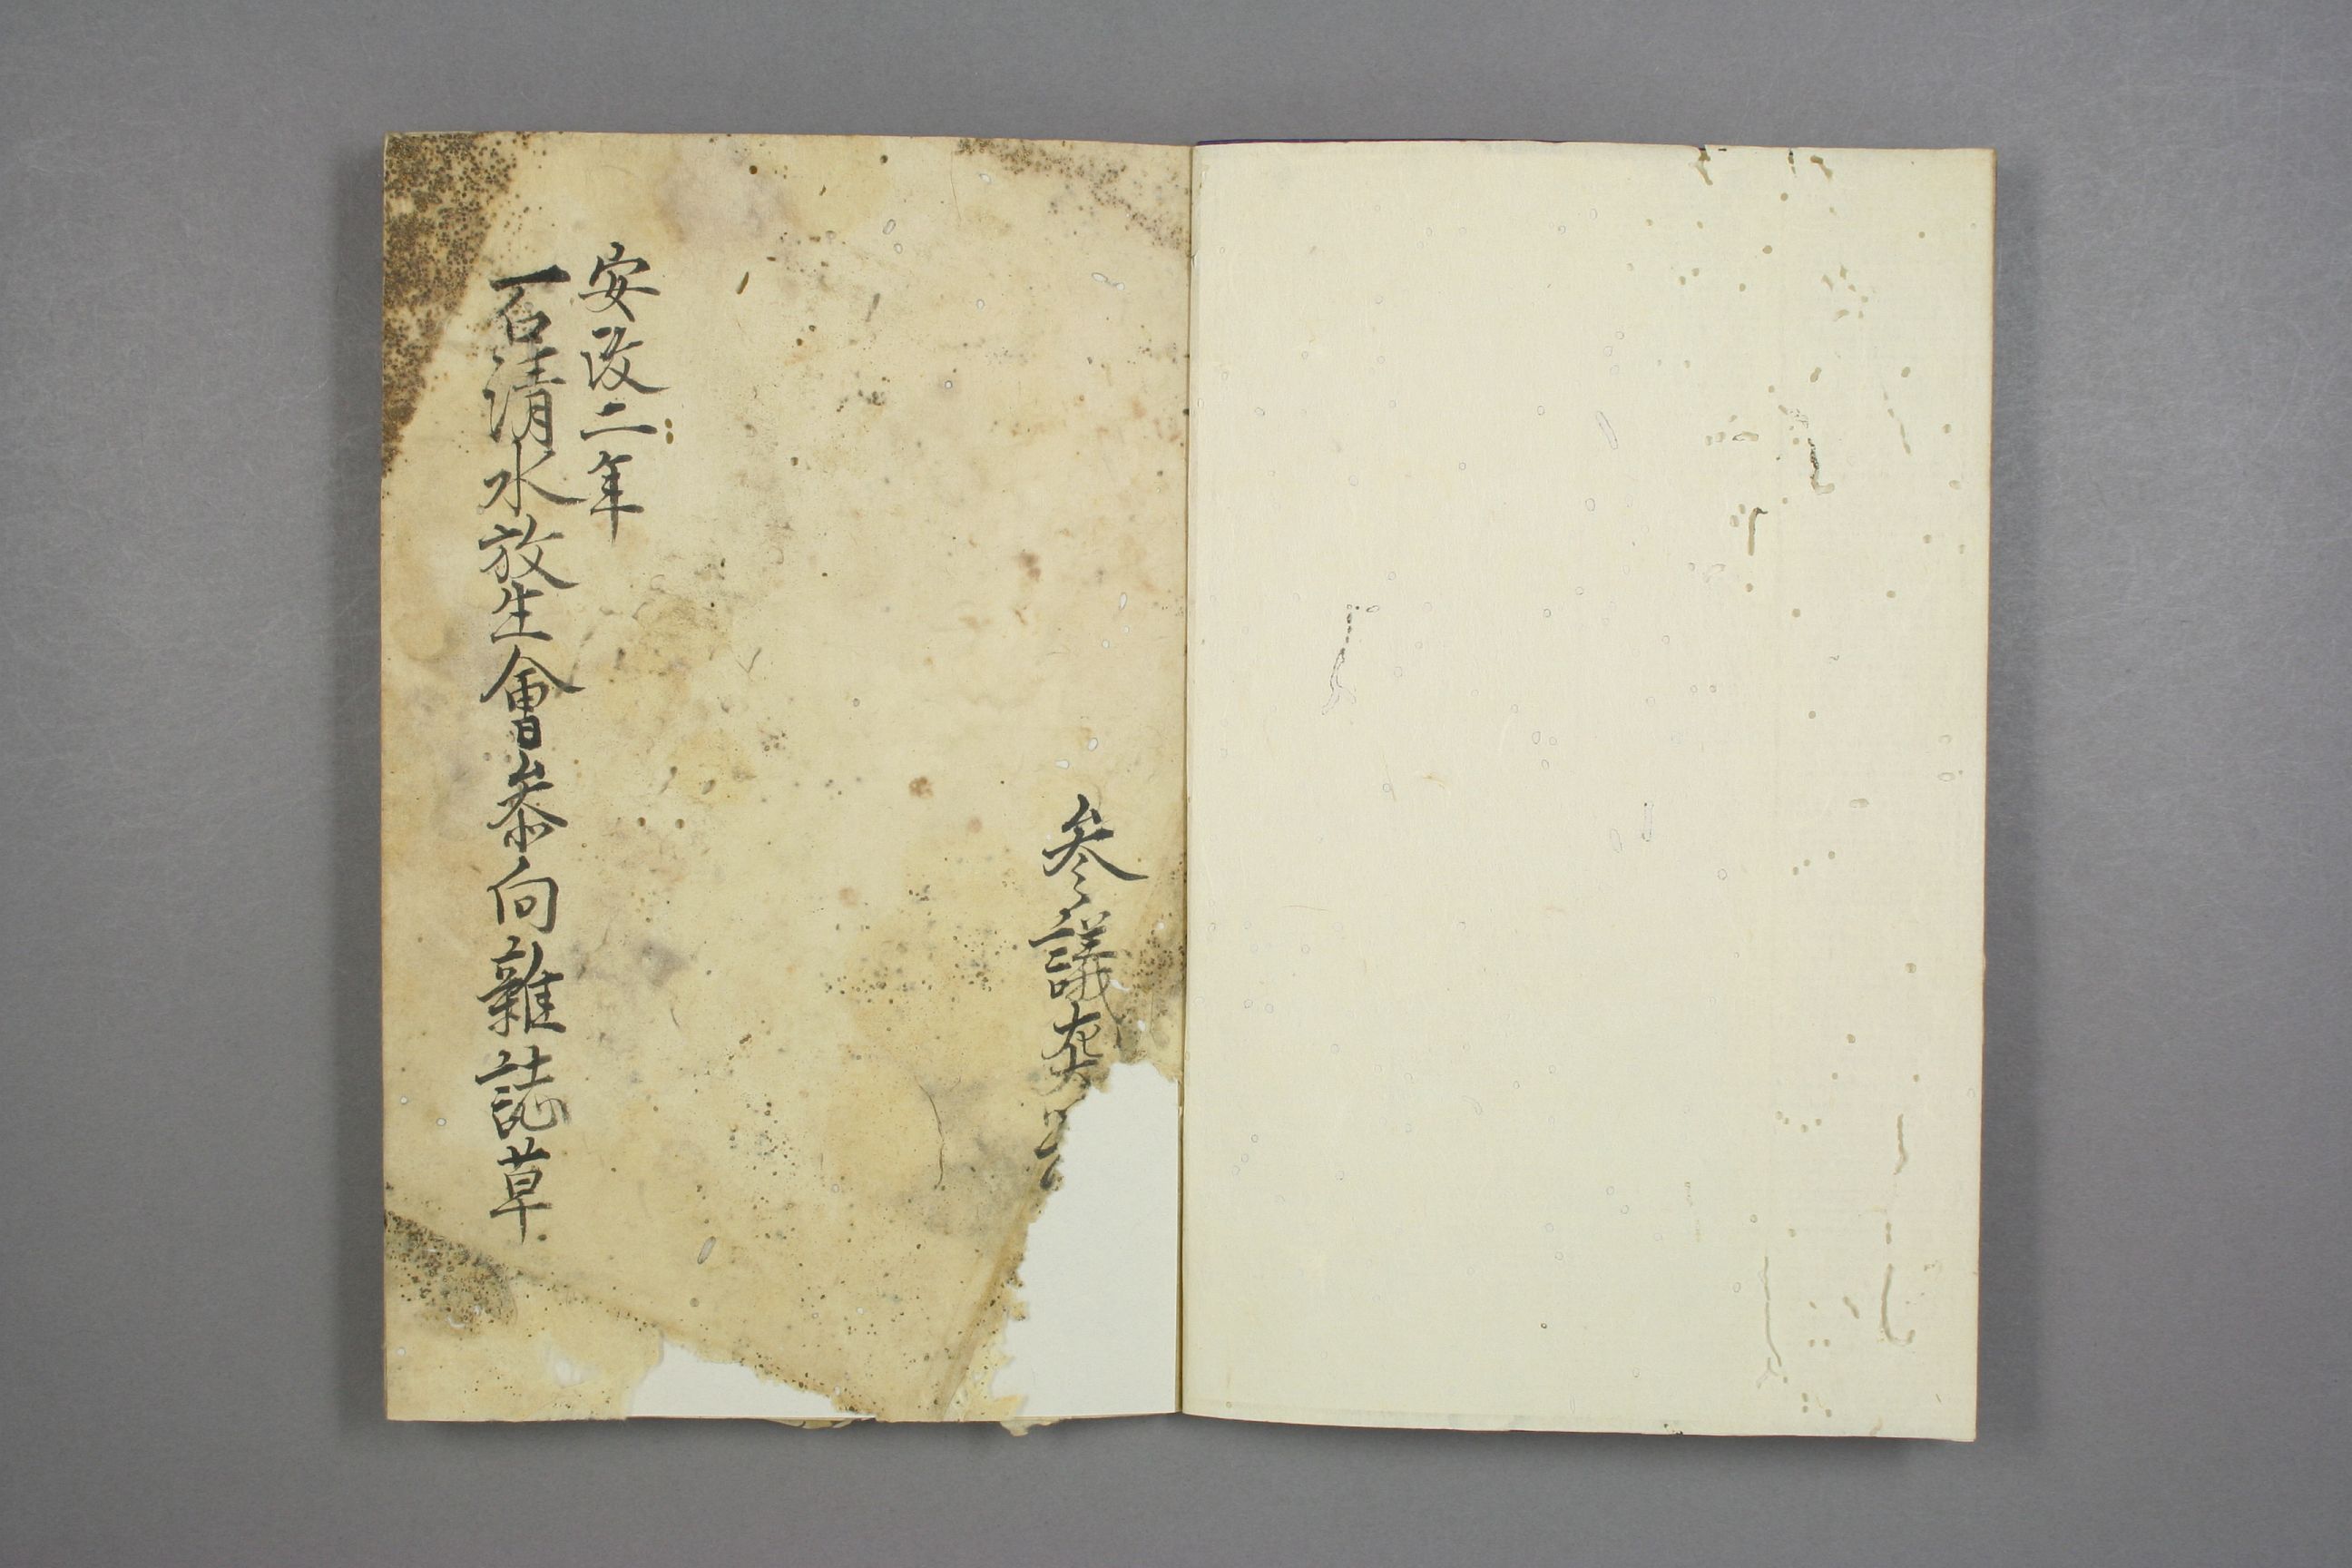 参議
安政二年
石清水放生會参向雜誌草